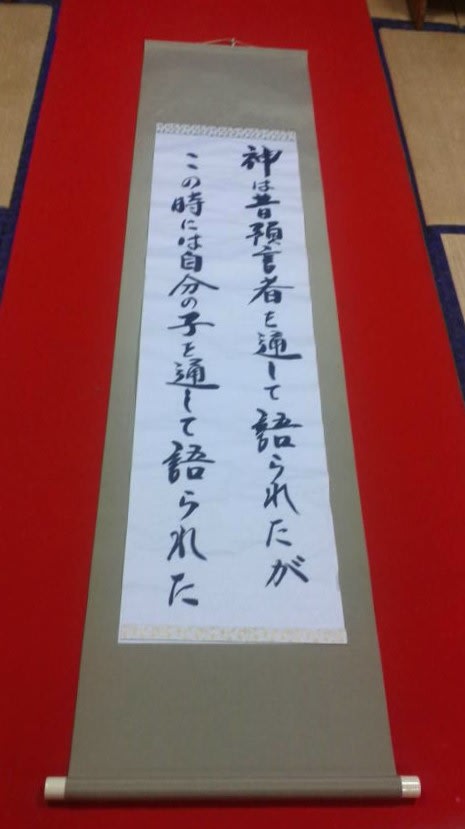 神は昔預言者を通して語られたが
この時には自分の子を通して語られた